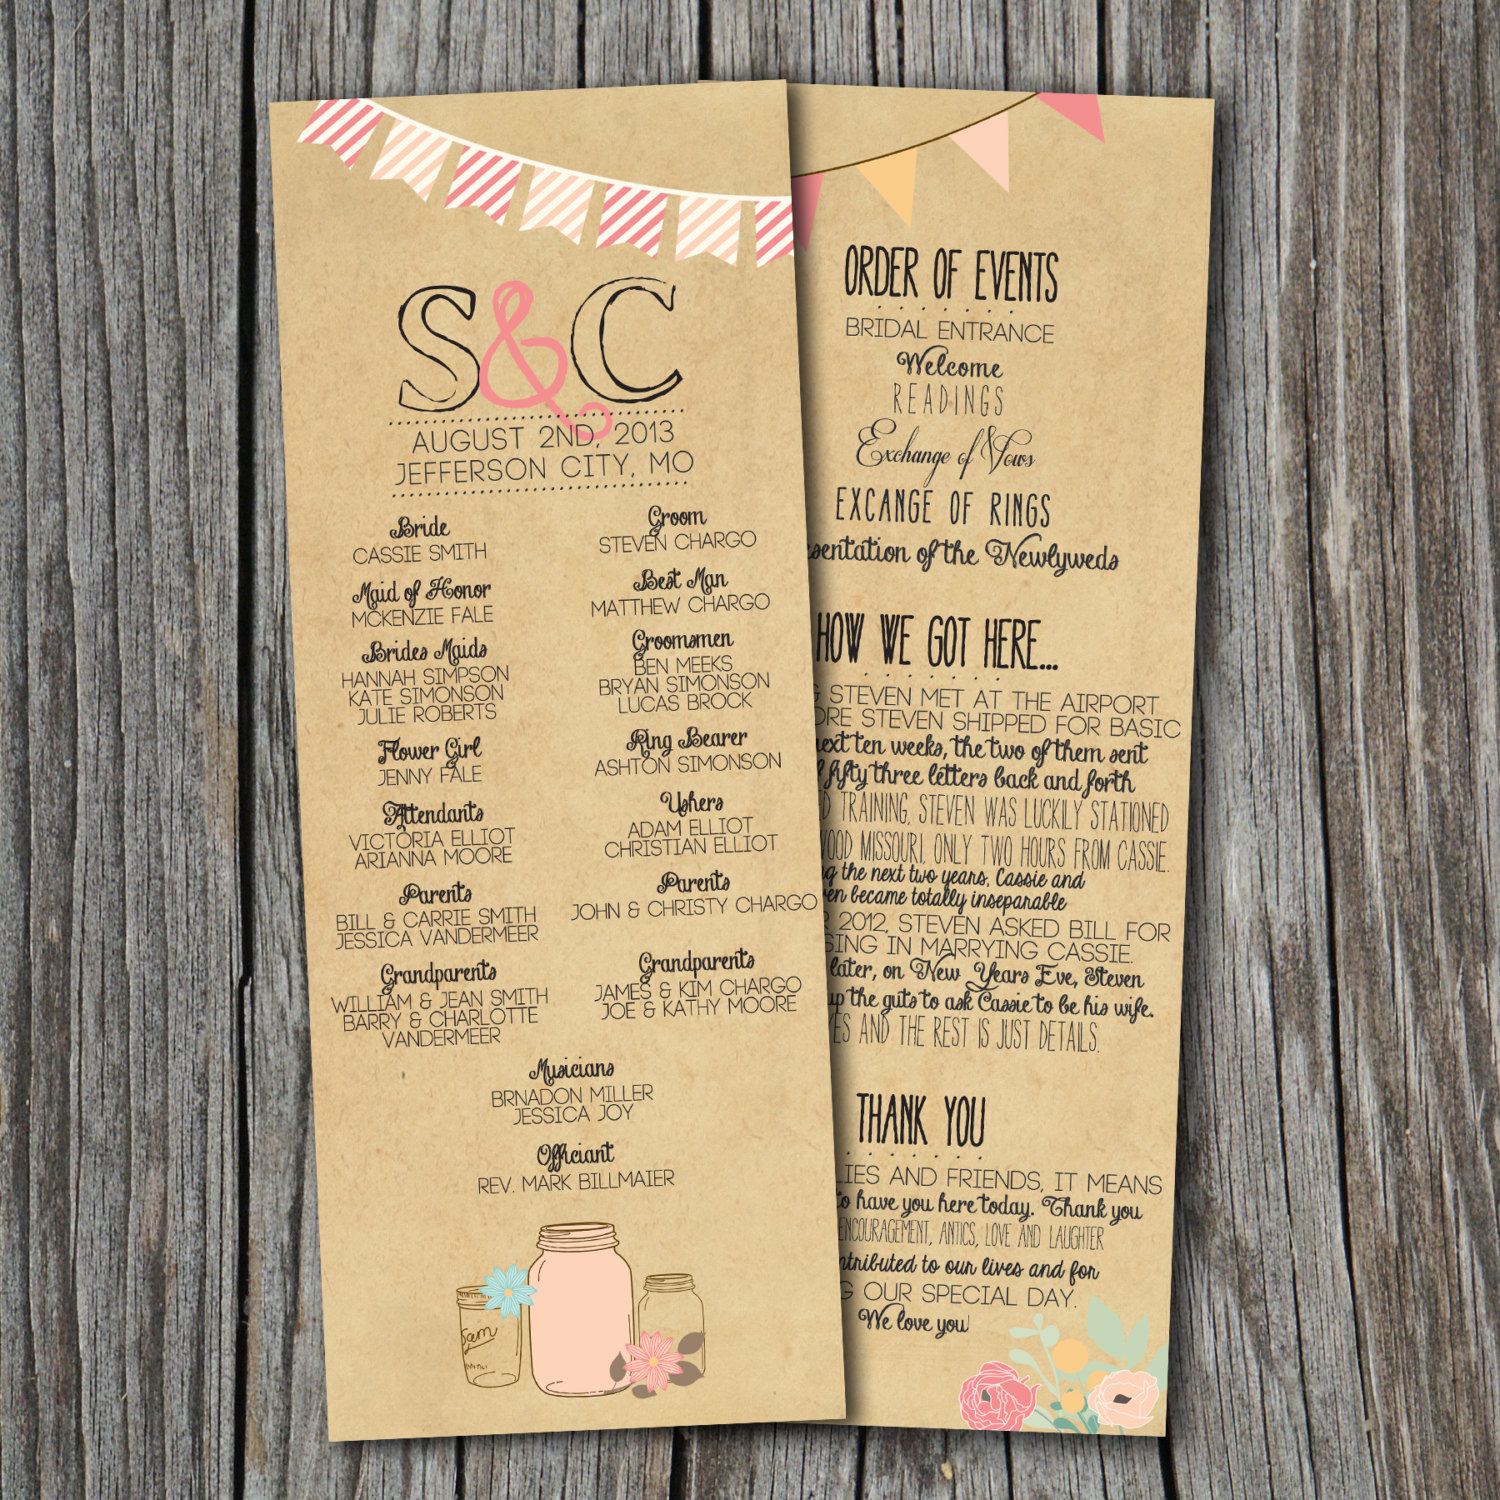 S&C
AUGUST 2ND, 2013
JEFFERSON CITY, MO
Bride
CASSIE SMITH
Maid of Honor
MCKENZIE FALE
Brides Maids
HANNAH SIMPSON
KATE SIMONSON
JULIE ROBERTS
Flower Girl
JENNY FALE
Attendants
VICTORIA ELLIOT
ARIANNA MOORE
Parents
BILL & CARRIE SMITH
JESSICA VANDERMEER
Grandparents
WILLIAM & JEAN SMITH
BARRY & CHARLOTTE
VANDERMEER
Groom
STEVEN CHARGO
Best Man
MATTHEW CHARGO
Groomsmen
BEN MEEKS
BRYAN SIMONSON
LUCAS BROCK
Ring Bearer
ASHTON SIMONSON
Ushers
ADAM ELLIOT
CHRISTIAN ELLIOT
Parents
JOHN & CHRISTY CHARGO
Grandparents
JAMES & KIM CHARGO
JOE & KATHY MOORE
Musicians
BRNADON MILLER
JESSICA JOY
Officiant
REV. MARK BILLMAIER
ORDER OF EVENTS
BRIDAL ENTRANCE
Welcome
READINGS
Exchange of Vows
EXCANGE OF RINGS
sentation of the Newlyweds
HOW WE GOT HERE...
& STEVEN MET AT THE AIRPORT
ORE STEVEN SHIPPED FOR BASIC
ext ten weeks, the two of them sent
fifty three letters back and forth
D TRAINING, STEVEN WAS LUCKILY STATIONED
WOOD MISSOURI, ONLY TWO HOURS FROM CASSIE.
g the next two years, Cassie and
en became totally inseparable
R 2012, STEVEN ASKED BILL FOR
SING IN MARRYING CASSIE.
later, on New Years Eve, Steven
up the guts to ask Cassie to be his wife.
ES AND THE REST IS JUST DETAILS.
THANK YOU
LIES AND FRIENDS, IT MEANS
to have you here today. Thank you
ENCOURAGEMENT, ANTICS, LOVE AND LAUGHTER
ntributed to our lives and for
G OUR SPECIAL DAY.
We love you!